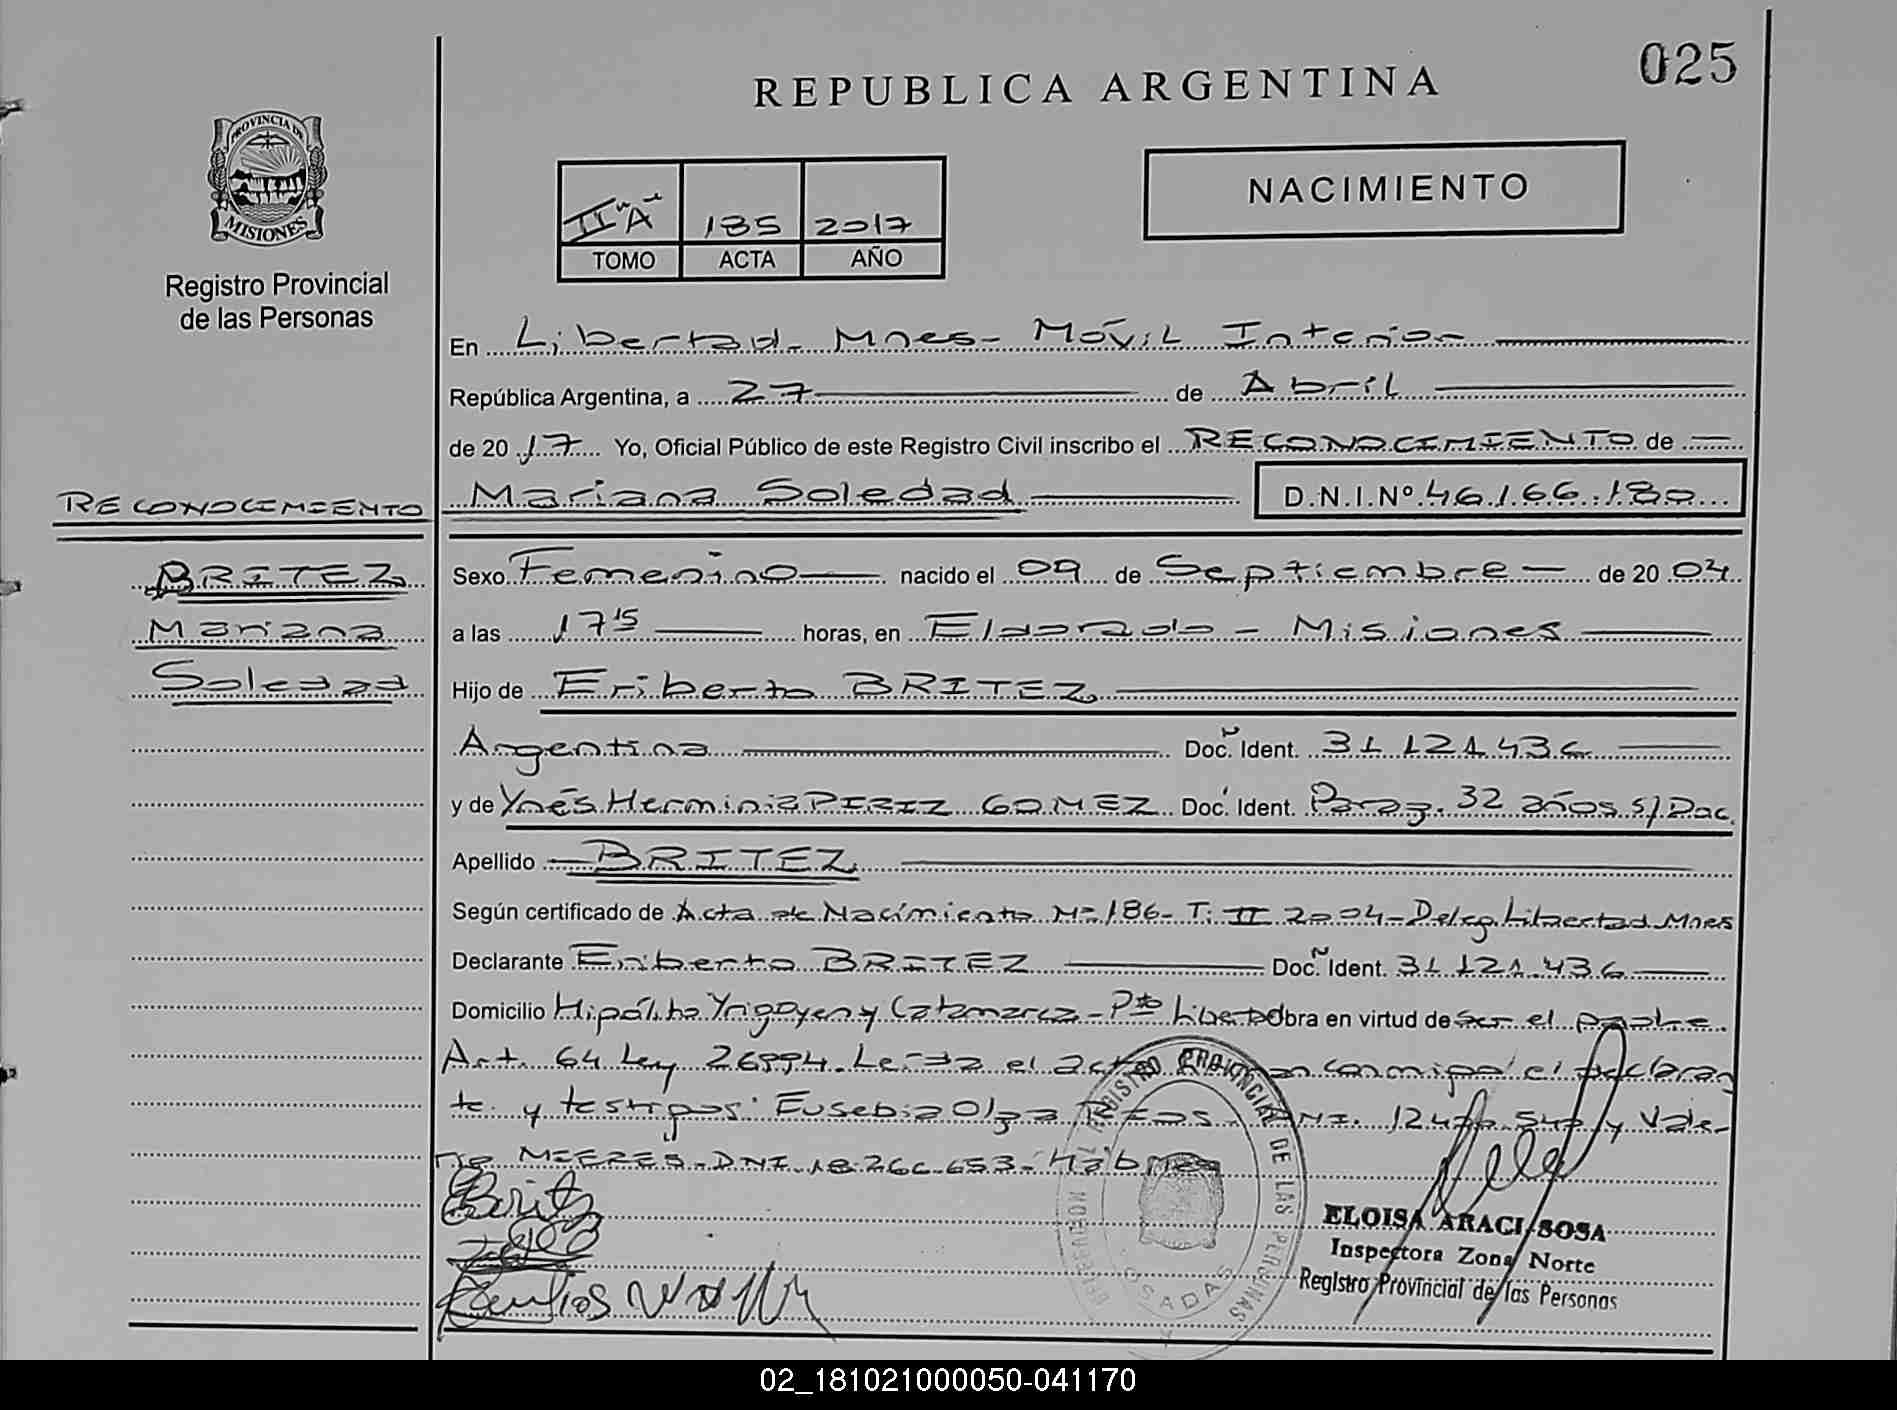 025
REPUBLICA ARGENTINA
PROVINCIA DE
MISIONES
Registro Provincial
de las Personas
NACIMIENTO
II "A" 185 2017
TOMO ACTA AÑO
En Libertad - Mnes - Móvil Interior
República Argentina, a 27 de Abril
de 2017 Yo, Oficial Público de este Registro Civil inscribo el RECONOCIMIENTO de
Mariana Soledad D.N.I.Nº 46.166.180
RECONOCIMIENTO
BRITEZ
Mariana
Soledad
Sexo Femenino nacido el 09 de Septiembre de 2004
a las 17 15 horas, en Eldorado - Misiones
Hijo de Eriberto BRITEZ
Argentina Doc. Ident. 31.121.436
y de Ynés Herminia PEREZ GOMEZ Doc. Ident. Parag. 32 años s/Doc
Apellido BRITEZ
Según certificado de Acta de Nacimiento Nº 186 - T: II 2004 - Deleg. Libertad Mnes
Declarante Eriberto BRITEZ Doc. Ident. 31.121.436
Domicilio Hipólito Yrigoyen y Catamarca - Pto Libertad Obra en virtud de ser el padre
Art. 64 Ley 26994. Leída el acta conmigo el declaran
te y testigos: Eusebia Olga DNI. y Vale-
rio MIERES - DNI 18.266.653 - Hábiles
Britez
REGISTRO PROVINCIAL DE LAS PERSONAS
POSADAS
ELOISA ARACI SOSA
Inspectora Zona Norte
Registro Provincial de las Personas
02_181021000050-041170